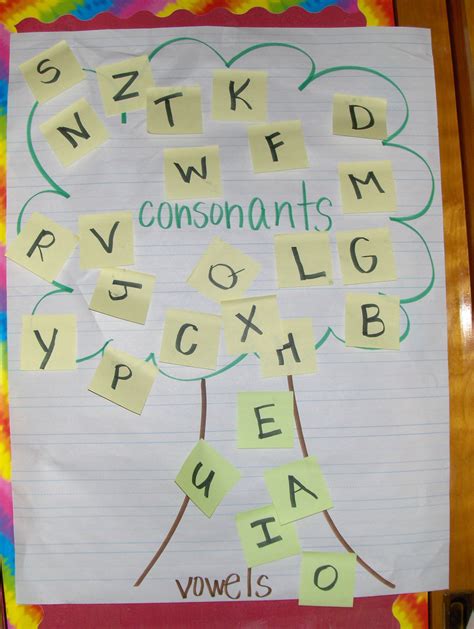 S Z T K
N W F D
consonants
M
R V Q L G
J
Y P C X H B
E
U A
I O
vowels